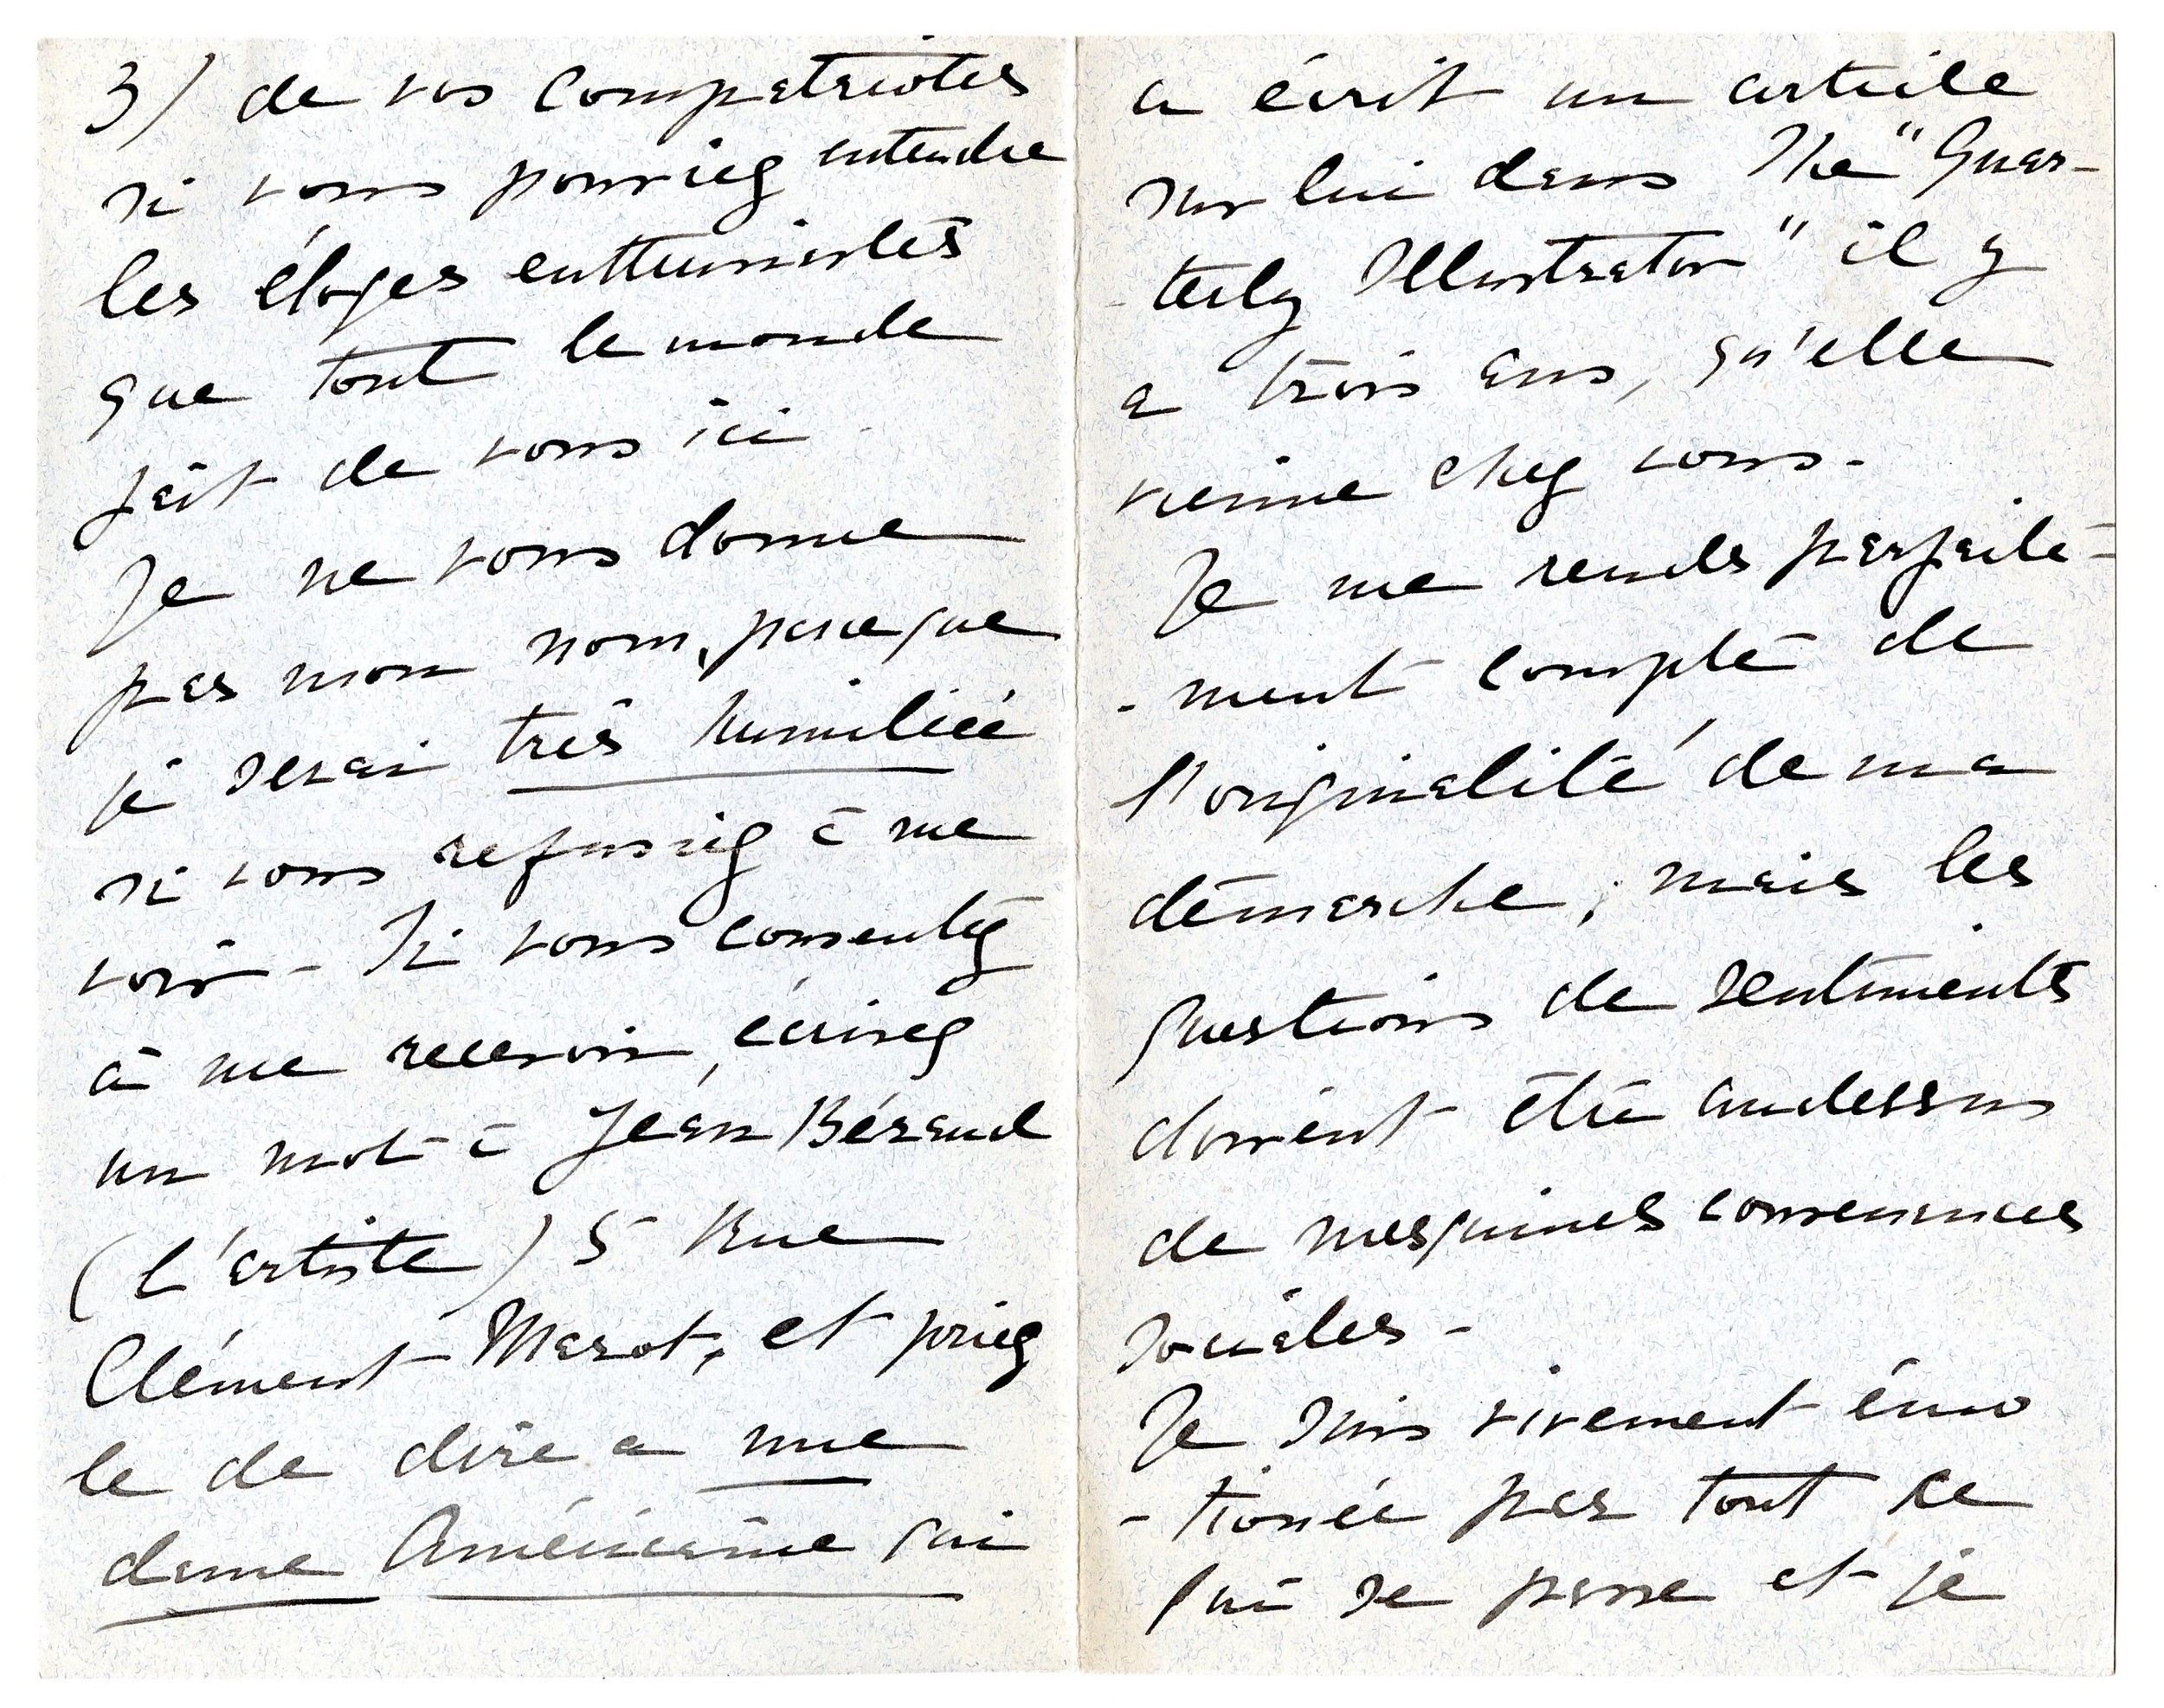 3) de vos compatriotes
si vous pouviez entendre
les éloges enthusiastes
que tout le monde
fait de vous ici
Je ne vous donne
pas mon nom, parceque
je serai très humiliée
si vous refusiez à me
voir - Si vous consentez
à me recevoir, écrivez
un mot à Jean Béraud
(l'artiste) 5 Rue
Clément Marot, et priez
le de dire a une
dame Américaine qui
a écrit un article
sur lui dans The "Quar-
-terly Illustrator" il y
a trois ans, qu'elle
vienne chez vous -
Je me rends parfaite-
-ment compte de
l'originalité de ma
démarche; mais les
questions de sentiments
doivent être audessus
de mesquines convenances
sociales -
Je suis vivement émo
-tionée par tout ce
qui se passe et je